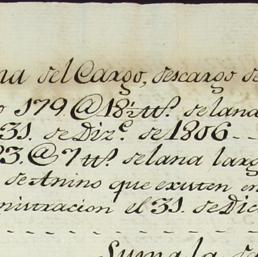 na del Cargo, descargo de
o 179.@ 18½ ttˢ. de lana
31. de Dizᵉ. de 1806
93.@ 7 ttˢ. de lana larg
s de Anino que existen en
ministracion el 31. de Dic
Suma la de